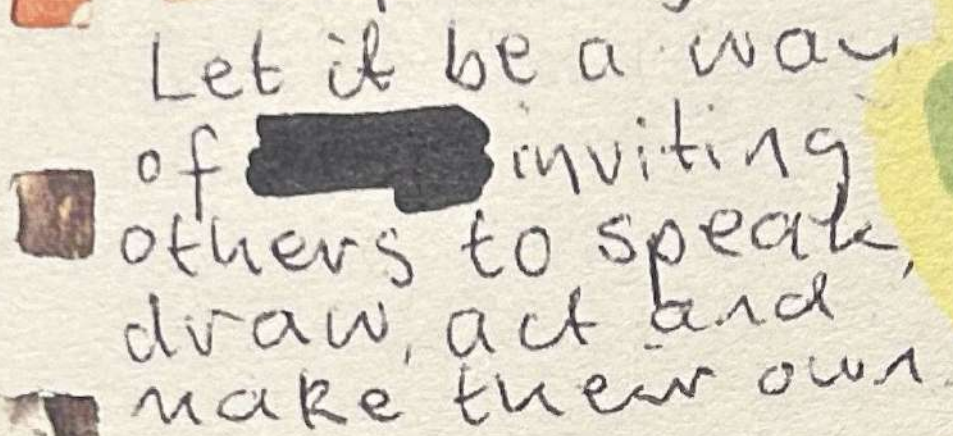 Let it be a way
of inviting
others to speak,
draw, act and
make their own